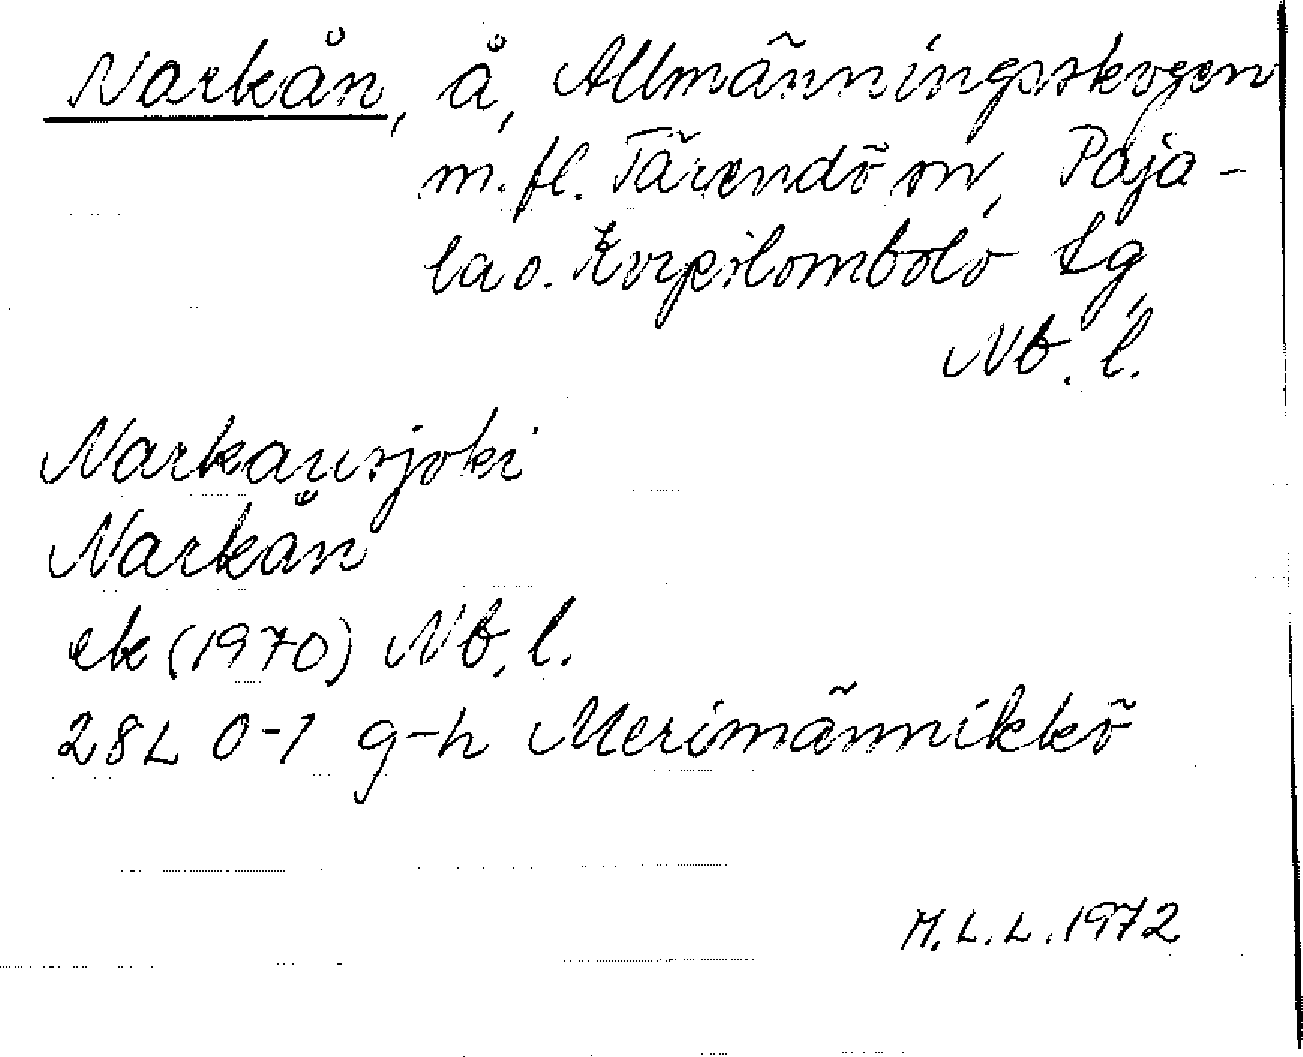 Narkån, å, Allmänningsskogen
m.fl. Tärendö sn, Paja-
la o. Korpilombolo tg,
Nb. l.
Narkausjoki
Narkån
ek (1970) Nb. l.
28L 0-1 g-h Merimännikkö
M.L.L. 1972